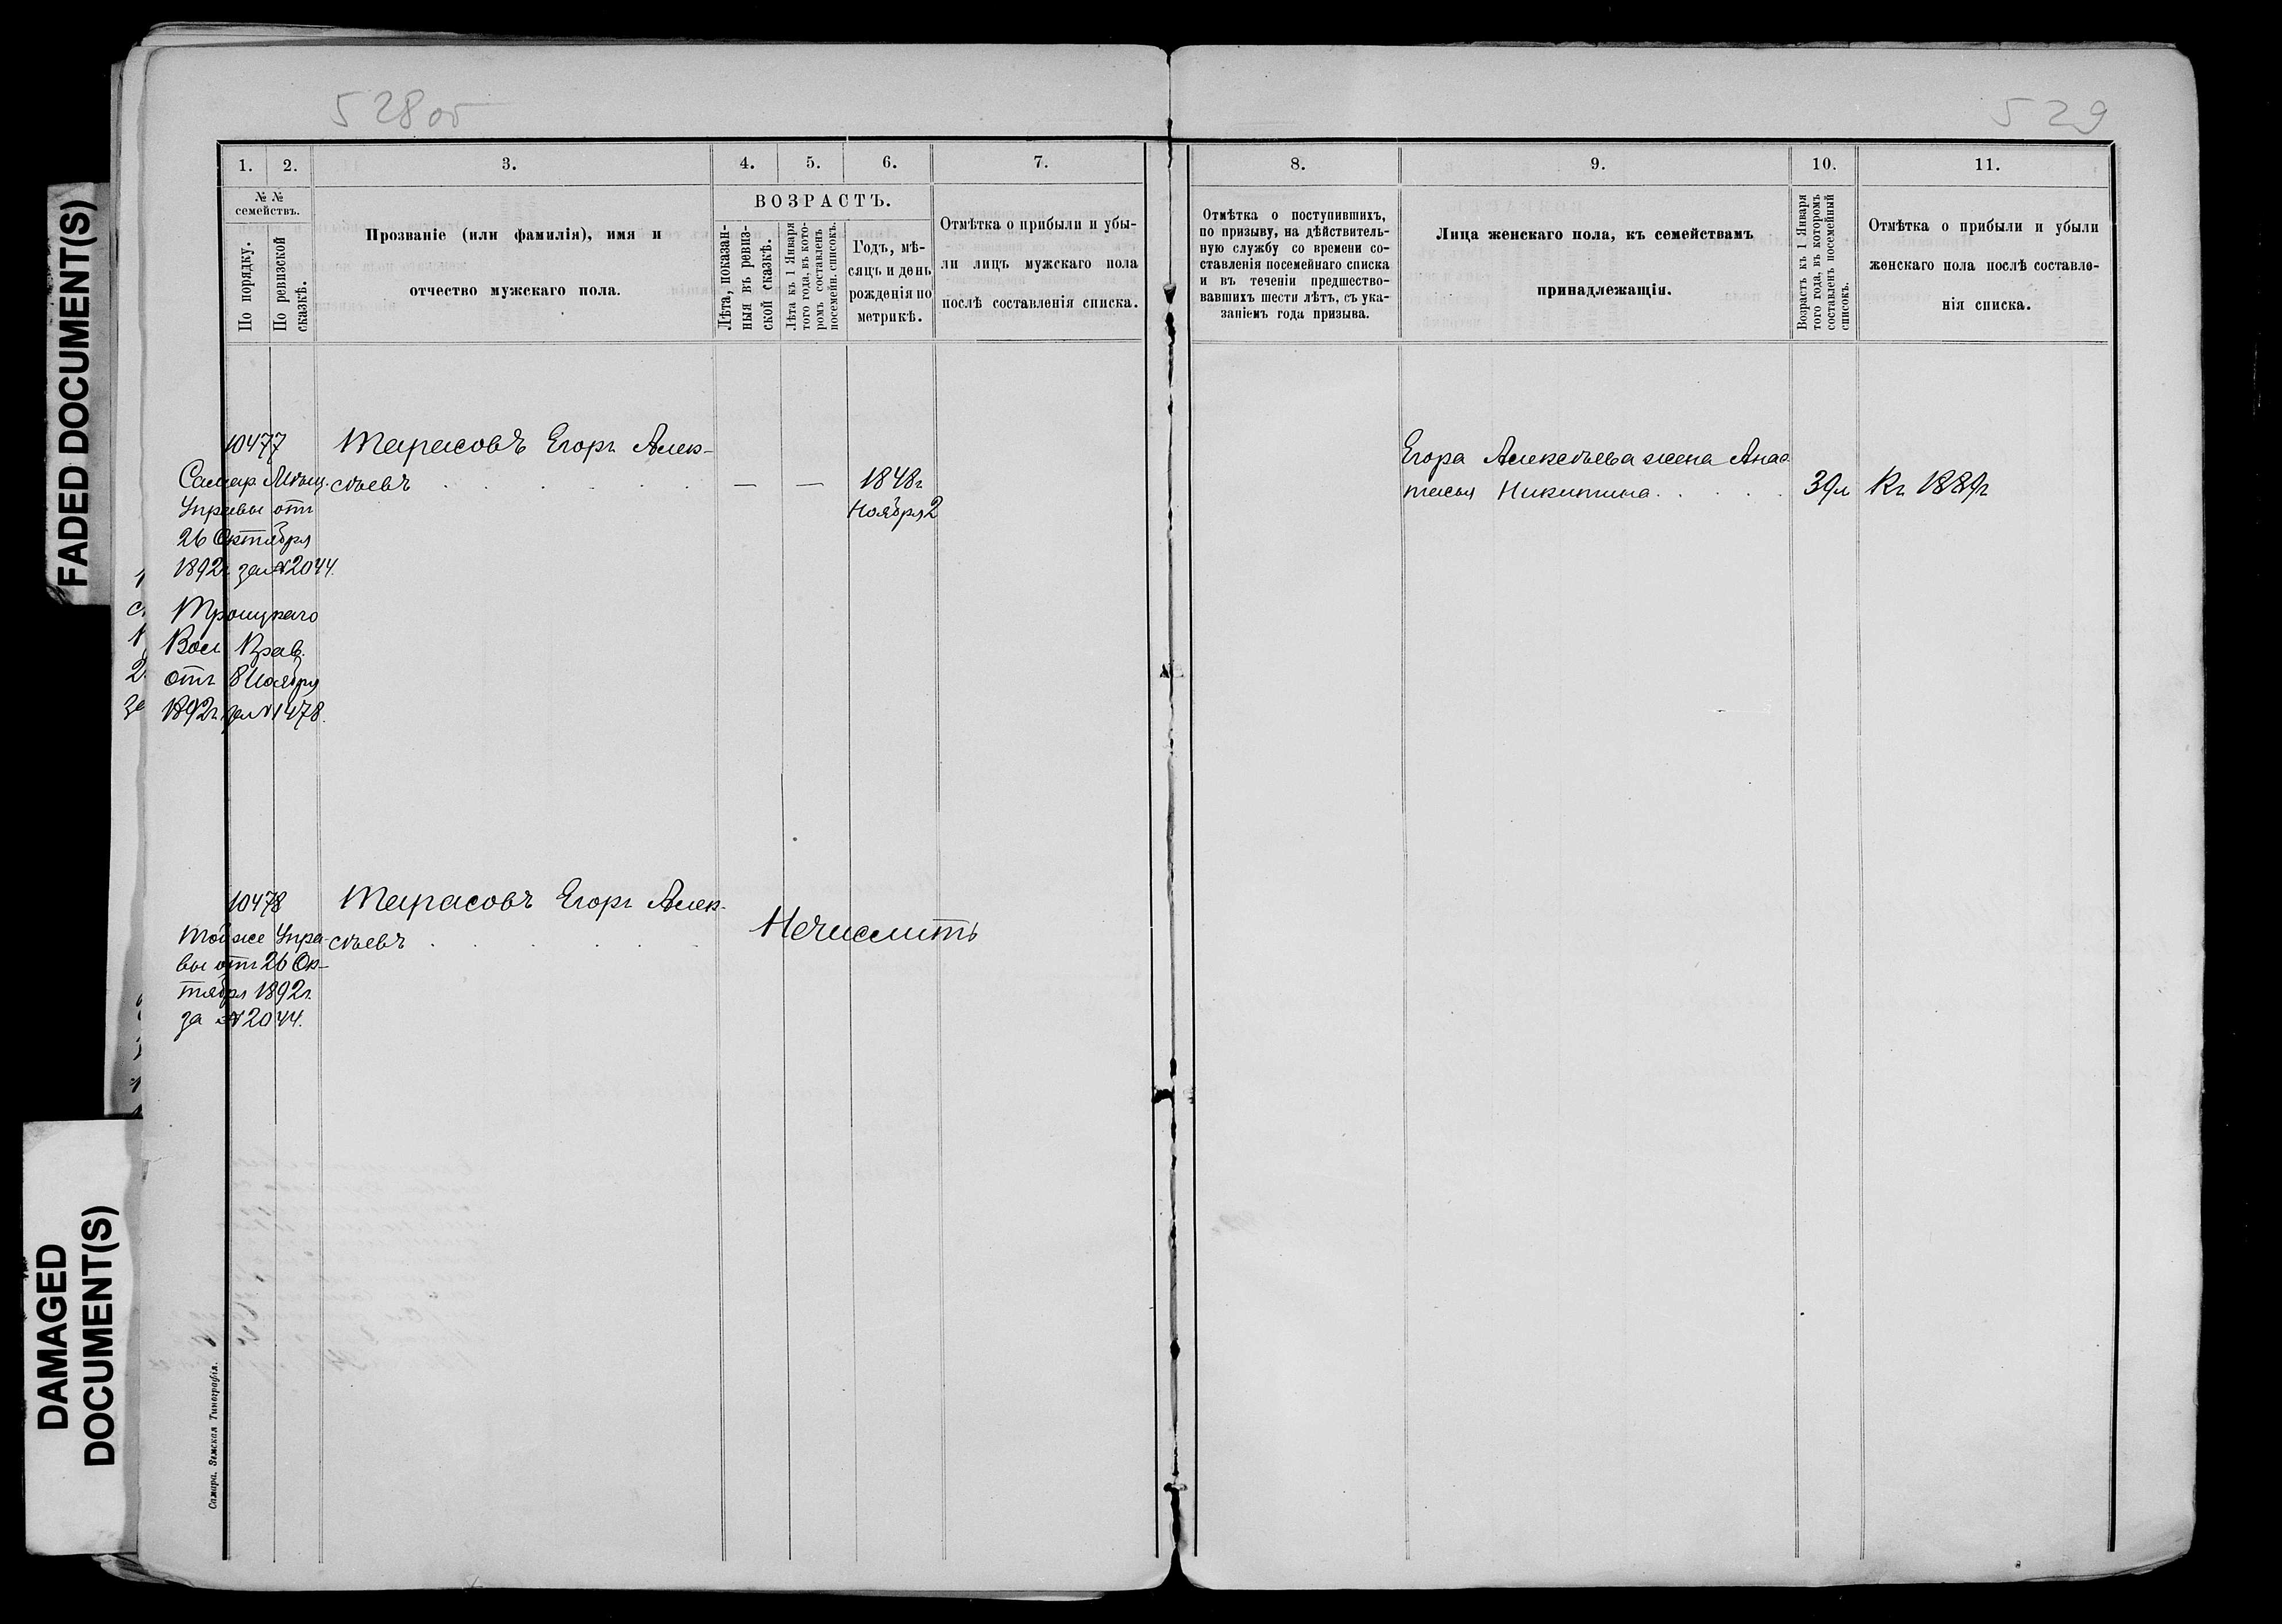 528об
529
FADED DOCUMENT(S)
DAMAGED
DOCUMENT(S)
1. 2. 3. 4. 5. 6. 7.
№ №
семействъ.
По порядку.
По ревизской
сказкѣ.
Прозваніе (или фамилія), имя и
отчество мужскаго пола.
ВОЗРАСТЪ.
Лѣта, показан-
ныя въ ревиз-
ской сказкѣ.
Лѣта къ 1 Января
того года, въ кото-
ромъ составленъ
посемейн. списокъ.
Годъ, мѣ-
сяцъ и день
рожденія по
метрикѣ.
Отмѣтка о прибыли и убы-
ли лицъ мужскаго пола
послѣ составленія списка.
10477
Самар. Мѣщ.
Управы отъ
26 Октября
1892г. за №2044.
Троицкаго
Вол. Прав.
отъ 8 Ноября
1892г. за №1478.
Тарасовъ Егоръ Алек-
сѣевъ . . . . . — — 1848г
Ноября 2
10478
Той же Упра-
вы отъ 26 Ок-
тября 1892г.
за №2044.
Тарасовъ Егоръ Алек-
сѣевъ . . . . .
Нечислить
Самара. Земская Типографія.
8. 9. 10. 11.
Отмѣтка о поступившихъ,
по призыву, на дѣйствитель-
ную службу со времени со-
ставленія посемейнаго списка
и въ теченіи предшество-
вавшихъ шести лѣтъ, съ ука-
заніемъ года призыва.
Лица женскаго пола, къ семействамъ
принадлежащія.
Возрастъ къ 1 Января
того года, въ которомъ
составленъ посемейный
списокъ.
Отмѣтка о прибыли и убыли
женскаго пола послѣ составле-
нія списка.
Егора Алексѣева жена Анас
тасья Никитина . . . . 39л Къ 1889г